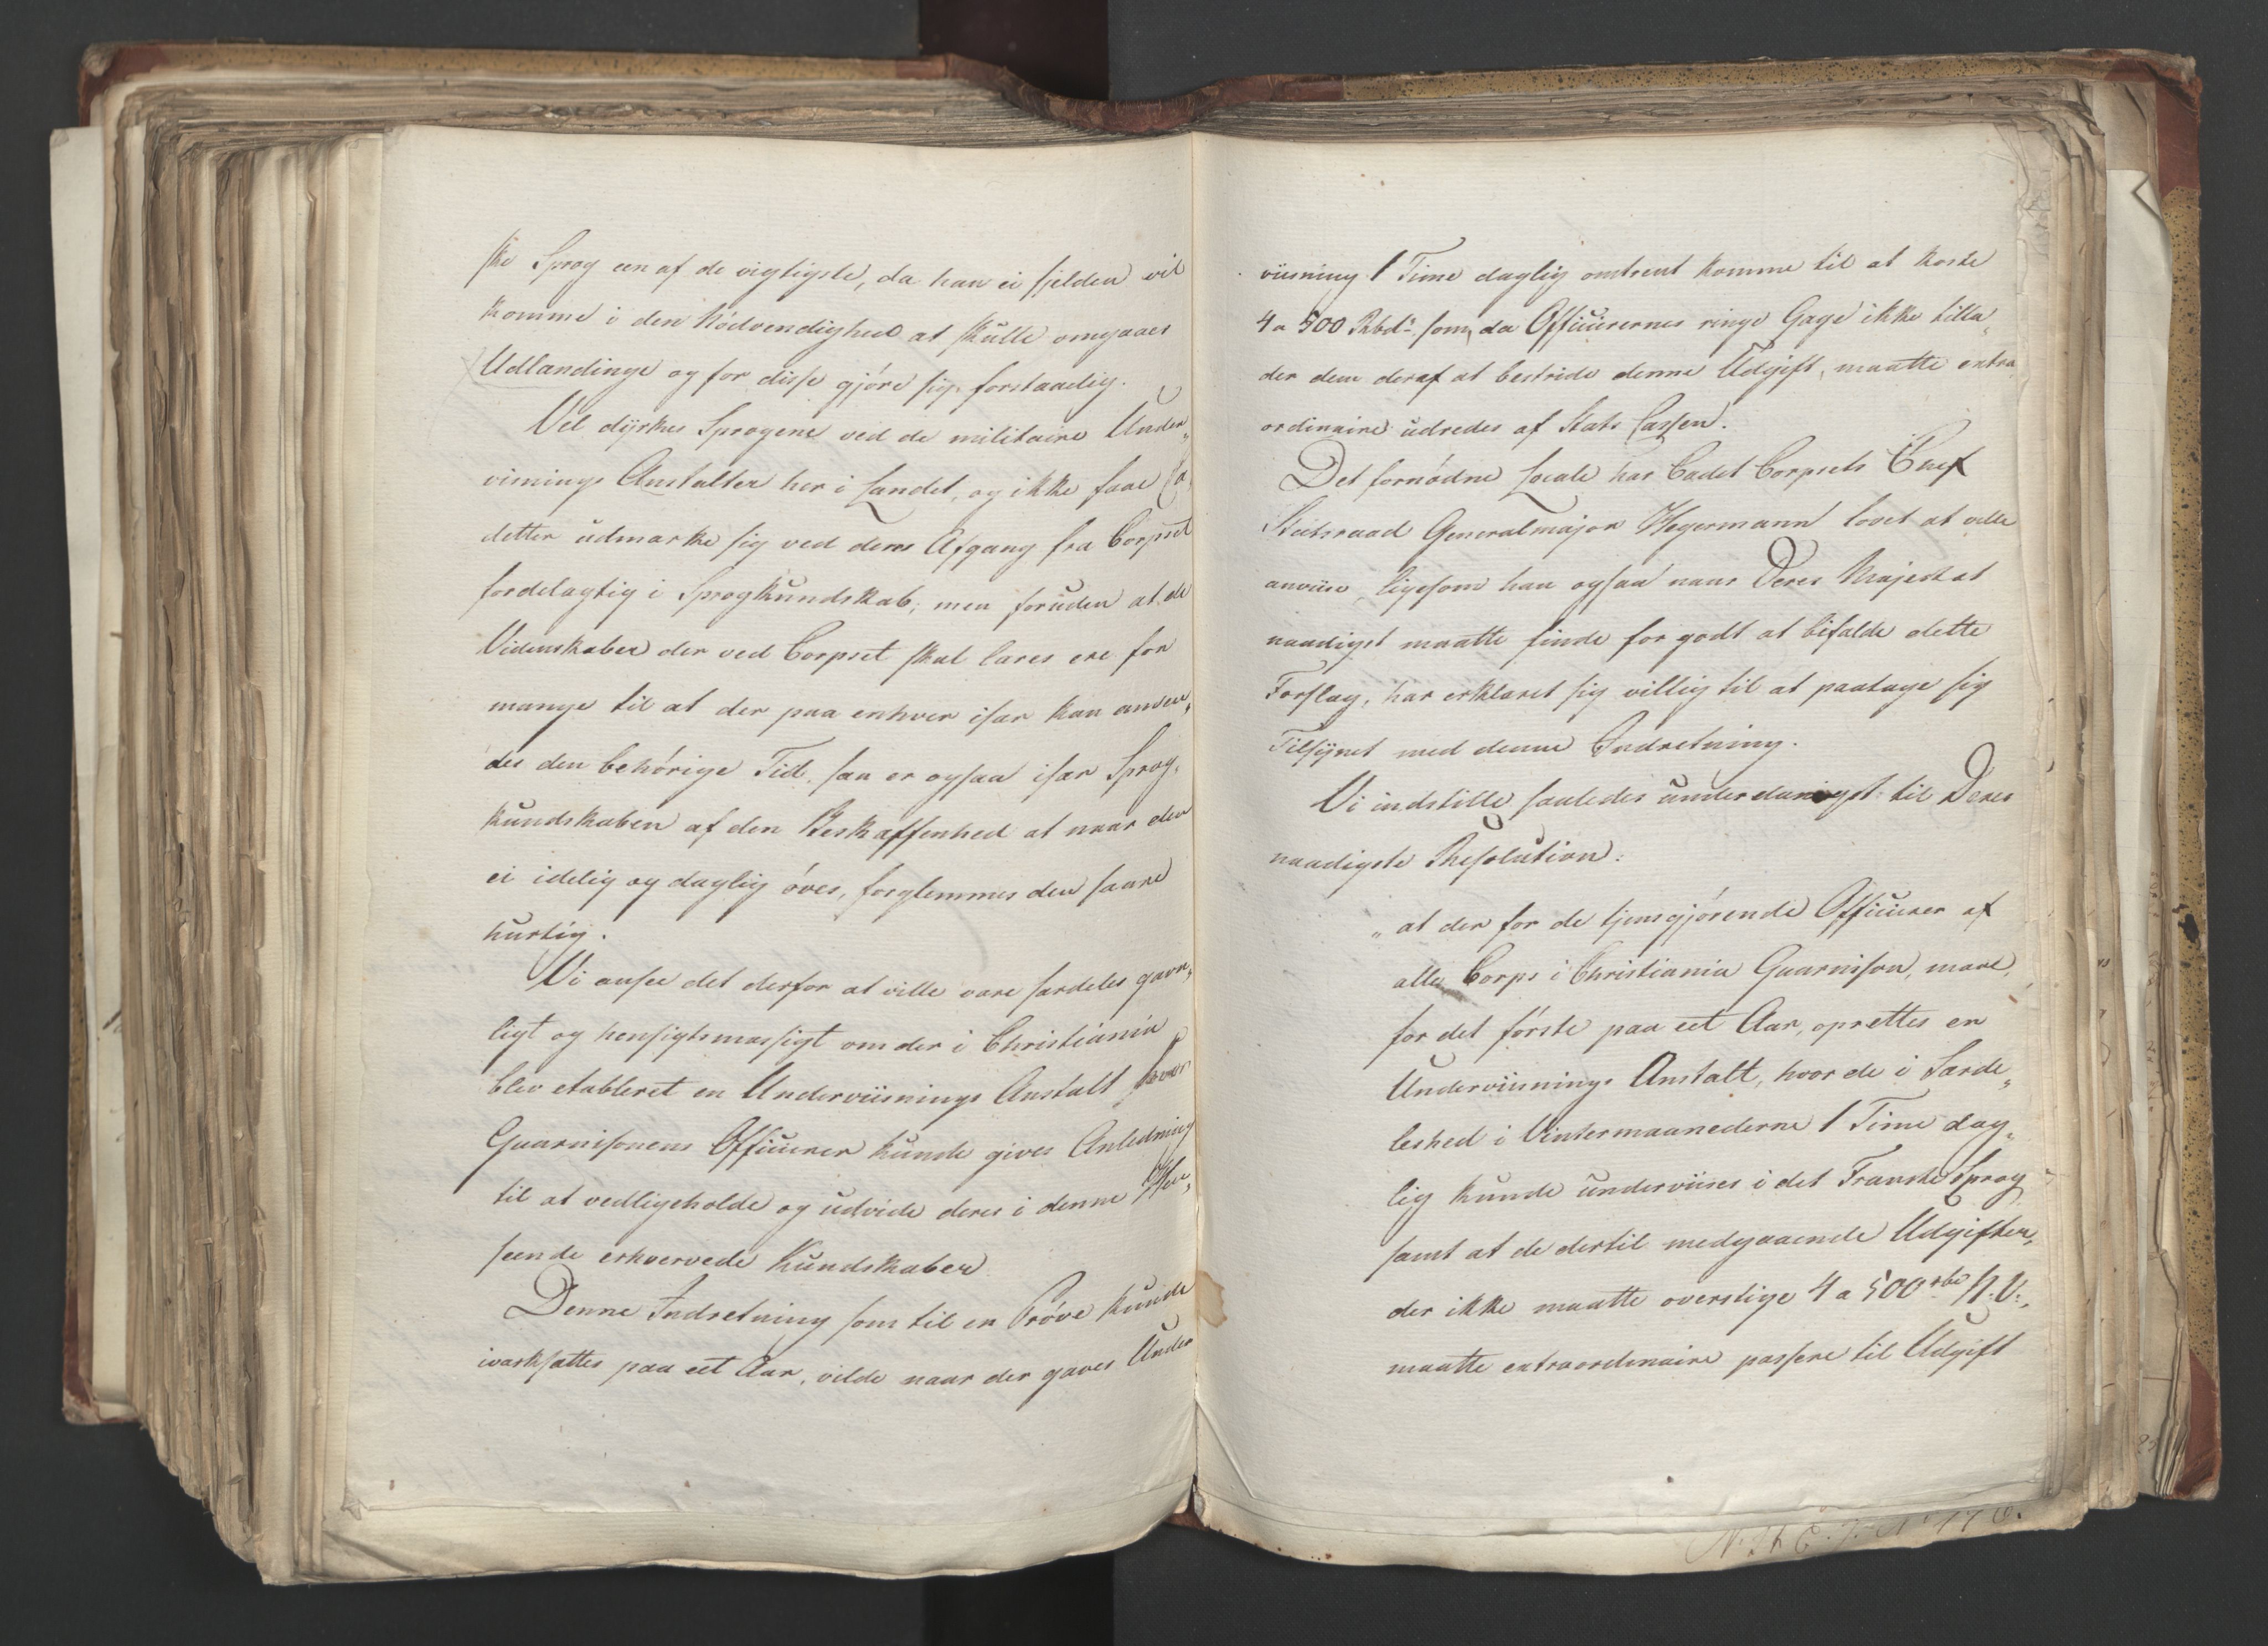 ske Sprog een af de vigtigste, da han ei sjelden vil
komme i den Nödvendighed at skulle omgaaes
Udlændinge og for disse gjöre sig forstaaelig.
Vel dyrkes Sprogene ved de militaire Under„
viisnings Anstalter her i Landet, og ikke faae Ca„
detter udmærke sig ved deres Afgang fra Corpset
fordelagtig i Sprogkundskab; men foruden at de
Videnskaber der ved Corpset skal læres ere for
mange til at der paa enhver især kan anven„
des den behörige Tid, saa er ogsaa især Sprog„
kundskaben af den Beskaffenhed at naar den
ei idelig og daglig öves, forglemmes den saare
hurtig.
Vi ansee det derfor at ville være særdeles gavn„
ligt og hensigtsmæssigt om der i Christiania
blev etableret en Underviisnings Anstalt hvor
Guarnisonens Officierer kunde gives Anledning
til at vedligeholde og udvide deres i denne Hen„
seende erhvervede Kundskaber.
Denne Indretning som til en Pröve kunde
iværksættes paa eet Aar, vilde naar der gaves Under
viisning 1 Time daglig omtrent komme til at koste
4 a 500 Rbdr som, da Officierernes ringe Gage ikke tilla„
der dem deraf at bestride denne Udgift, maatte extra
ordinaire udredes af Stats Cassen.
Det fornödne Locale har Cadet Corpsets Chef
Statsraad Generalmajor Hegermann lovet at ville
anviise, ligesom han ogsaa naar Deres Majestæt
naadigst maatte finde for godt at bifalde dette
Forslag, har erklæret sig villig til at paatage sig
Tilsynet med denne Indretning.
Vi indstille saaledes underdanigst til Deres
naadigste Resolution:
„at der for de tjensgjörende Officierer af
alle Corps i Christiania Guarnison, maae,
for det förste paa eet Aar, oprettes en
Underviisnings Anstalt, hvor de i Særde„
leshed i Vintermaanederne 1 Time dag„
lig kunde underviises i det Franske Sprog
samt at de dertil medgaaende Udgifter,
der ikke maatte overstige 4 a 500 rbd N: V:,
maatte extraordinaire passere til Udgift